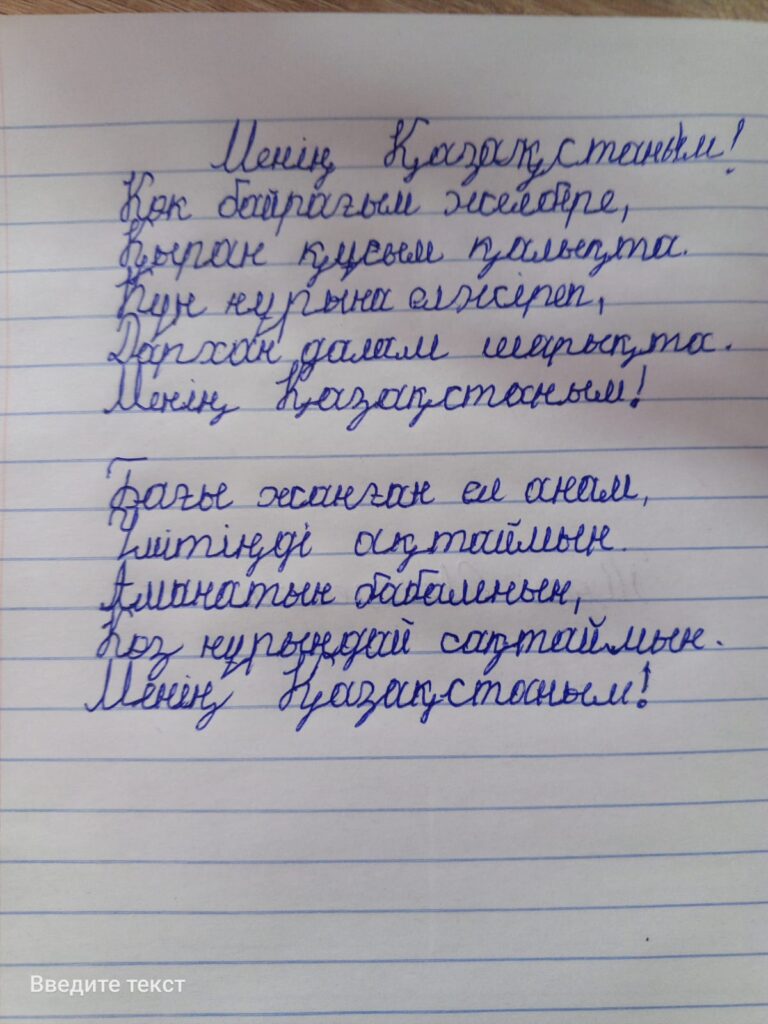 Менің Қазақстаным!
Көк байрағым желбіре,
Қыран құсым қалықта.
Күн нұрына елжіреп,
Дархан далам шарықта.
Менің Қазақстаным!
Бағы жанған ел анам,
Үмітіңді ақтаймын.
Аманатын бабамның,
Көз нұрындай сақтаймын.
Менің Қазақстаным!
Введите текст